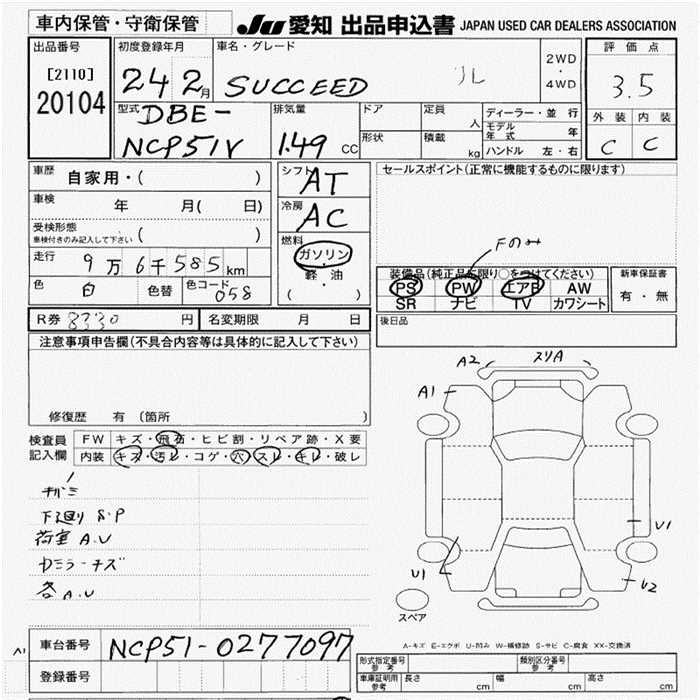 車内保管・守衛保管
JU 愛知 出品申込書 JAPAN USED CAR DEALERS ASSOCIATION
出品番号
[2110]
20104
初度登録年月
24 2月
車名・グレード
SUCCEED
UL
2WD
・
4WD
評価点
3.5
外装 内装
C C
型式
DBE-
NCP51V
排気量
1.49 CC
ドア
形状
定員 人
積載 kg
ディーラー・並行
モデル年式 年
ハンドル 左・右
車歴 自家用・( )
車検 年 月( 日)
受検形態
車検付きのみ記入して下さい ( )
走行 9万6千585km
色 白 色替 色コード 058
シフト AT
冷房 AC
燃料
ガソリン
軽油
( ・ )
セールスポイント(正常に機能するものに限ります)
Fのみ
装備品(純正品を限り○をつけてください)
PS PW エアB AW
SR ナビ TV カワシート
新車保証書
有・無
R券 8330 円 名変期限 月 日
後日品
注意事項申告欄(不具合内容等は具体的に記入して下さい)
修復歴 有 (箇所
検査員 FW キズ・飛石・ヒビ割・リペア跡・X要
記入欄 内装 キズ・汚レ・コゲ・穴・スレ・キレ・破レ
下廻り S・P
荷室 A.U
各 A.U
A2 スリA
A1
U1
U1
U2
スペア
A-キズ E-エクボ U-凹み W-補修跡 S-サビ C-腐食 XX-交換済
A1
車台番号 NCP51-0277097
登録番号
形式指定番号 参考
類別区分番号 参考
車庫証明用 参考 長さ cm 幅 cm 高さ cm